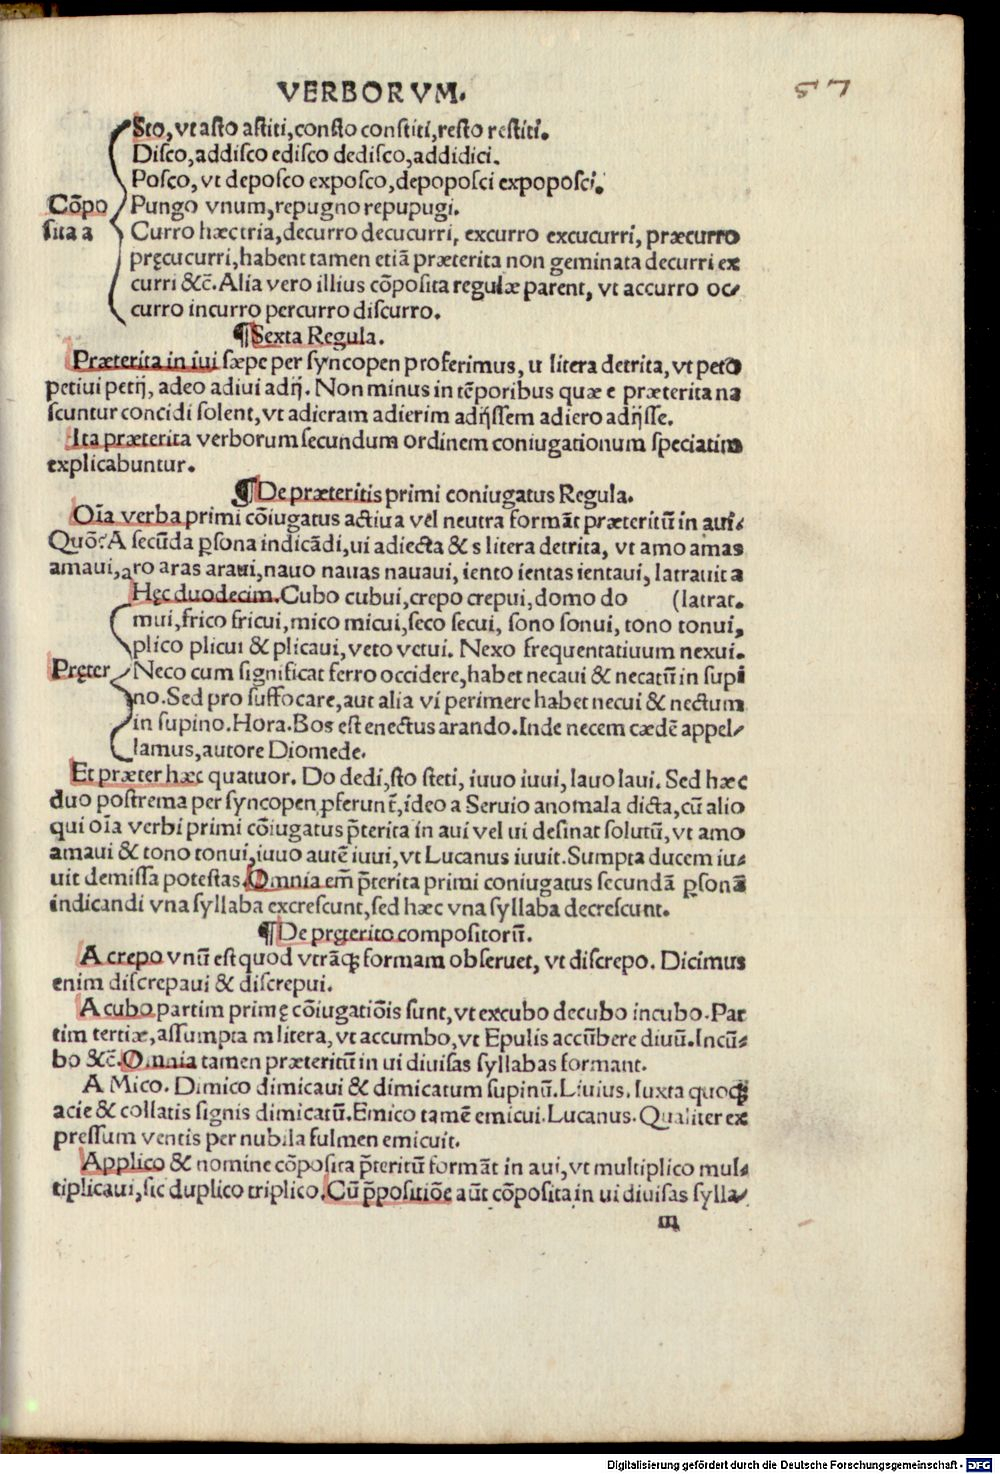 VERBORVM.
57
Sto, vt asto astiti, consto constiti, resto restiti.
Disco, addisco edisco dedisco, addidici.
Posco, vt deposco exposco, depoposci expoposci.
Cõpo Pungo vnum, repugno repupugi.
sita a Curro hæc tria, decurro decucurri, excurro excucurri, præcurro
pręcucurri, habent tamen etiã præterita non geminata decurri ex
curri &c̃. Alia vero illius cõposita regulæ parent, vt accurro oc/
curro incurro percurro discurro.
¶Sexta Regula.
Præterita in iui sæpe per syncopen proferimus, u litera detrita, vt peto
petiui petij, adeo adiui adij. Non minus in tẽporibus quæ e præterita na
scuntur concidi solent, vt adieram adierim adijssem adiero adijsse.
Ita præterita verborum secundum ordinem coniugationum speciatim
explicabuntur.
¶De præteritis primi coniugatus Regula.
Oĩa verba primi cõiugatus actiua vel neutra formãt præteritũ in aui.
Quõ? A secũda ꝑsona indicãdi, ui adiecta & s litera detrita, vt amo amas
amaui, aro aras araui, nauo nauas nauaui, iento ientas ientaui, latrauit a
Hęc duodecim. Cubo cubui, crepo crepui, domo do (latrat.
mui, frico fricui, mico micui, seco secui, sono sonui, tono tonui,
plico plicui & plicaui, veto vetui. Nexo frequentatiuum nexui.
Pręter Neco cum significat ferro occidere, habet necaui & necatũ in supi
no. Sed pro suffocare, aut alia vi perimere habet necui & nectum
in supino. Hora. Bos est enectus arando. Inde necem cædẽ appel/
lamus, autore Diomede.
Et præter hæc quatuor. Do dedi, sto steti, iuuo iuui, lauo laui. Sed hæc
duo postrema per syncopen ꝓferunt̃, ideo a Seruio anomala dicta, cũ alio
qui oĩa verbi primi cõiugatus p̃terita in aui vel ui desinat solutũ, vt amo
amaui & tono tonui, iuuo autẽ iuui, vt Lucanus iuuit. Sumpta ducem iu/
uit demissa potestas. Omnia em̃ p̃terita primi coniugatus secundã ꝑsonã
indicandi vna syllaba excrescunt, sed hæc vna syllaba decrescunt.
¶De pręterito compositorũ.
A crepo vnũ est quod vtrãq; formam obseruet, vt discrepo. Dicimus
enim discrepaui & discrepui.
A cubo partim primę cõiugatiõis sunt, vt excubo decubo incubo. Par
tim tertiæ, assumpta m litera, vt accumbo, vt Epulis accũbere diuũ. Incũ/
bo &c̃. Omnia tamen præteritũ in ui diuisas syllabas formant.
A Mico. Dimico dimicaui & dimicatum supinũ. Liuius. Iuxta quoq;
acie & collatis signis dimicatũ. Emico tamẽ emicui. Lucanus. Qualiter ex
pressum ventis per nubila fulmen emicuit.
Applico & nomine cõposita p̃teritũ formãt in aui, vt multiplico mul/
tiplicaui, sic duplico triplico. Cũ p̃positiõe aũt cõposita in ui diuisas sylla/
m
Digitalisierung gefördert durch die Deutsche Forschungsgemeinschaft - DFG